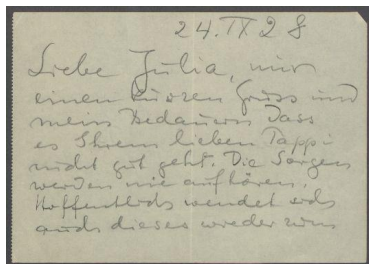 24. IX 28
Liebe Julia, nur
einen kurzen Gruss und
mein Bedauern dass
es Ihrem lieben Pappi
nicht gut geht. Die Sorgen
werden nie aufhören.
Hoffentlich wendet sich
auch dieses wieder zum